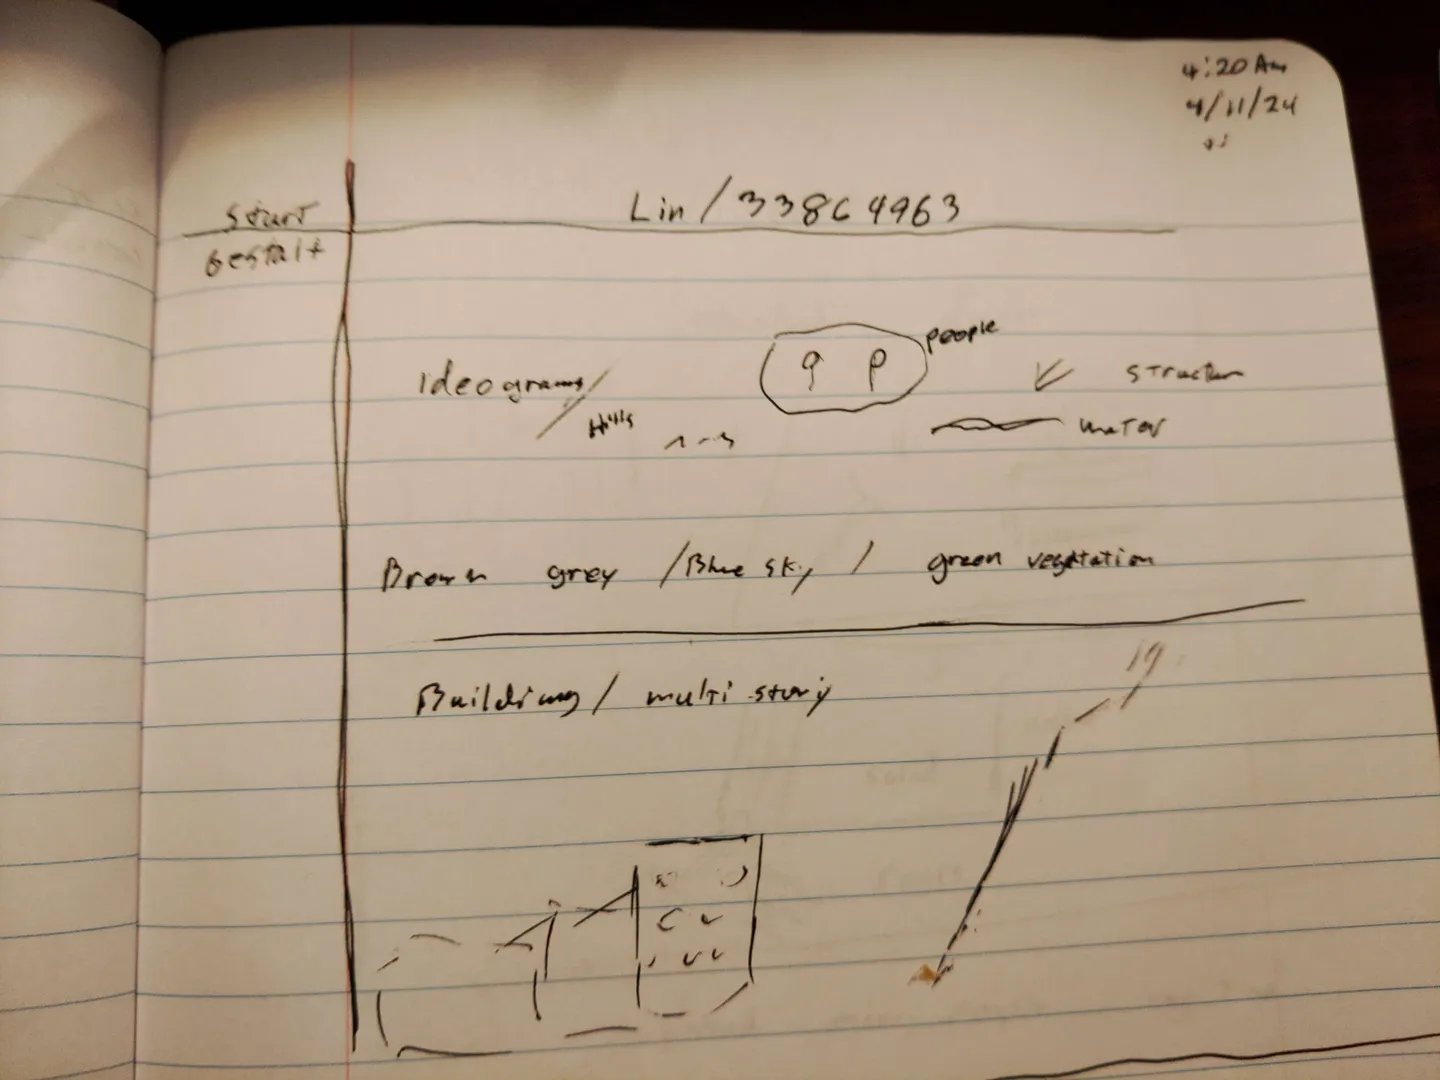 4:20 Am
4/11/24
Start
Lin / 33864963
Gestalt
people
Ideograms /
structure
Hills
water
Brown grey / Blue sky / green vegetation
Building / multi story